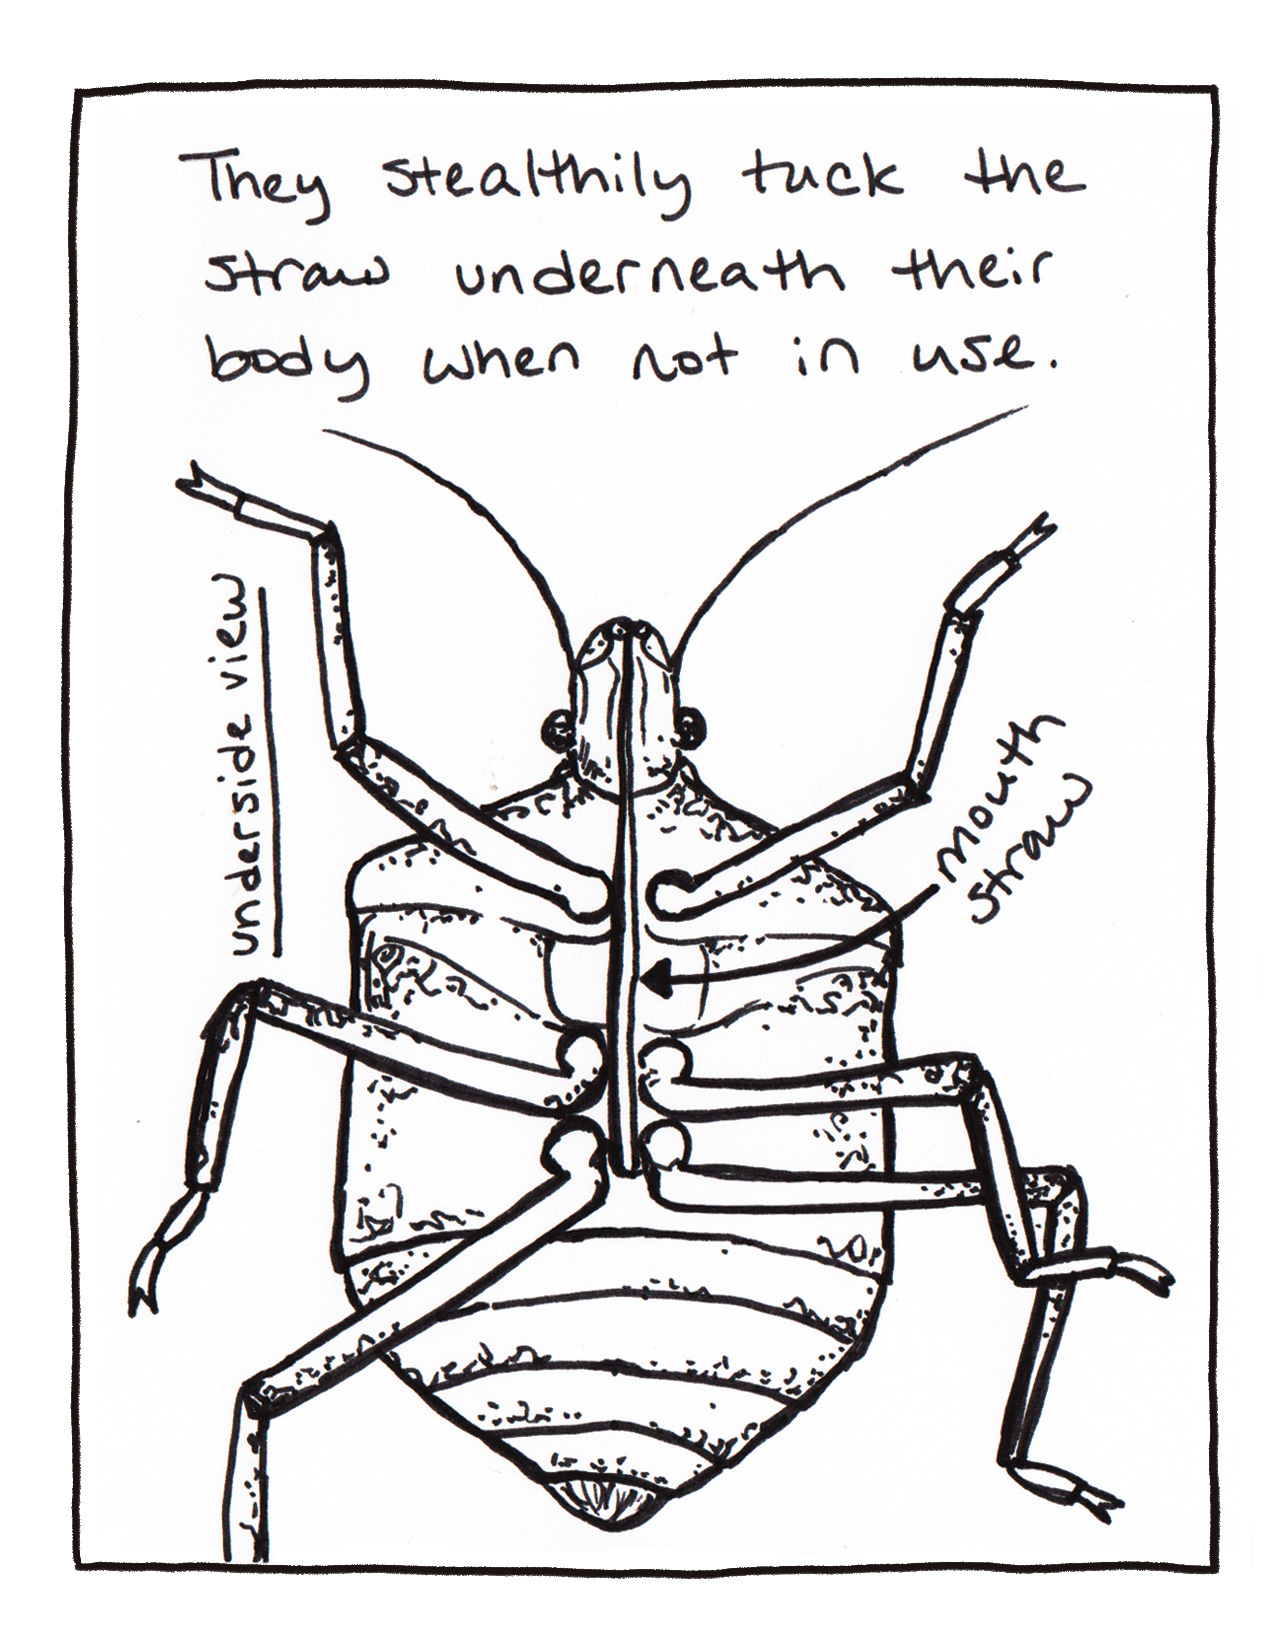 They stealthily tuck the
straw underneath their
body when not in use.
underside view
mouth
straw